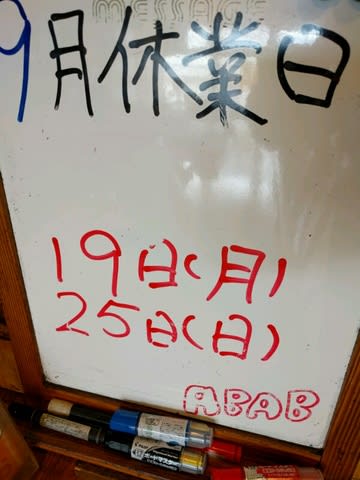 MESSAGE
9月休業日
19日(月)
25日(日)
ABAB